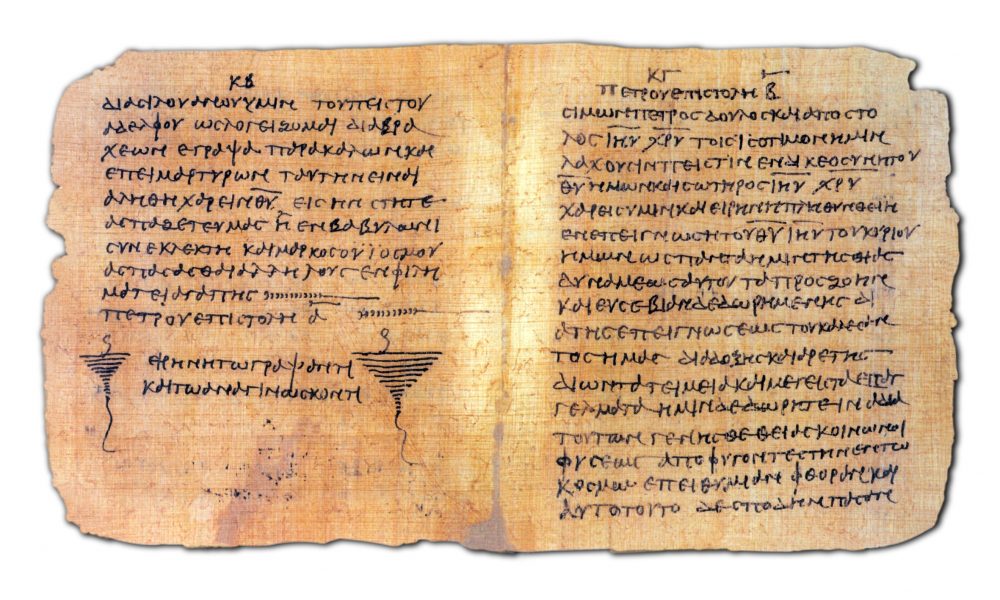 ΚΒ
ΔΙΑCΙΛΟΥΑΝΟΥΥΜΙΝ ΤΟΥΠΕΙCΤΟΥ
ΑΔΕΛΦΟΥ ΩCΛΟΓΕΙΖΟΜΑΙ ΔΙΑΒΡΑ
ΧΕΩΝ ΕΓΡΑΨΑ ΠΑΡΑΚΑΛΩΝΚΑΙ
ΕΠΕΙΜΑΡΤΥΡΩΝ ΤΑΥΤΗΝΕΙΝΑΙ
ΑΛΗΘΗΧΑΡΕΙΝΘ̅Υ̅ ΕΙCΗΝCΤΗΤΕ
ΑCΠΑΖΕΤΕΥΜΑC Η ΕΝΒΑΒΥΛΩΝΙ
CΥΝΕΚΛΕΚΤΗ ΚΑΙΜΑΡΚΟCΟΥΙΟCΜΟΥ
ΑCΠΑCΑCΘΑΙΑΛΛΗΛΟΥC ΕΝΦΙΛΗ
ΜΑΤΕΙΑΓΑΠΗC
ΠΕΤΡΟΥΕΠΙCΤΟΛΗ Α̅
ΕΙΡΗΝΗΤΩΓΡΑΨΑΝΤΙ
ΚΑΙΤΩΑΝΑΓΙΝΩCΚΟΝΤΙ
ΚΓ
ΠΕΤΡΟΥΕΠΙCΤΟΛΗ Β̅
CΙΜΩΝΠΕΤΡΟCΔΟΥΛΟCΚΑΙΑΠΟCΤΟ
ΛΟC Ι̅Η̅Υ̅ Χ̅Ρ̅Υ̅ ΤΟΙCΙCΟΤΙΜΟΝΗΜΙΝ
ΛΑΧΟΥCΙΝΠΕΙCΤΙΝ ΕΝΔΙΚΕΟCΥΝΗΤΟΥ
Θ̅Υ̅ΗΜΩΝΚΑΙCΩΤΗΡΟC Ι̅Η̅Υ̅ Χ̅Ρ̅Υ̅
ΧΑΡΕΙCΥΜΙΝΚΑΙΕΙΡΗΝΗΠΛΗΘΥΝΘΕΙΗ
ΕΝΕΠΕΙΓΝΩCΗΤΟΥΘ̅Υ̅ Ι̅Η̅Υ̅ΤΟΥΚΥΡΙΟΥ
ΗΜΩΝ ΩCΠΑΝΤΑΗΜΙΝΤΗCΘΙΑC
ΔΥΝΑΜΕΩCΑΥΤΟΥΤΑΠΡΟCΖΩΗΝ
ΚΑΙΕΥCΕΒΙΑΝΔΕΔΩΡΗΜΕΝΗC ΔΙ
ΑΤΗCΕΠΕΙΓΝΩCΕΩCΤΟΥΚΑΛΕCΑΝ
ΤΟCΗΜΑC ΔΙΑΔΟΞΗCΚΑΙΑΡΕΤΗC
ΔΙΩΝΤΑΤΕΙΜΕΙΑΚΑΙΜΕΓΕΙCΤΑΕΠΑΓ
ΓΕΛΜΑΤΑ ΗΜΙΝΔΕΔΩΡΗΤΕΙΝΑΔΙΑ
ΤΟΥΤΩΝ ΓΕΝΗCΘΕΘΕΙΑCΚΟΙΝΩΝΟΙ
ΦΥCΕΩC ΑΠΟΦΥΓΟΝΤΕCΤΗΝΕΝΤΩ
ΚΟCΜΩ ΕΠΕΙΘΥΜΙΑΝ ΦΘΟΡΑΝΚΑΙ
ΑΥΤΟΤΟΥΤΟ ΔΕCΠΟΔΗΝΠΑCΑΝ